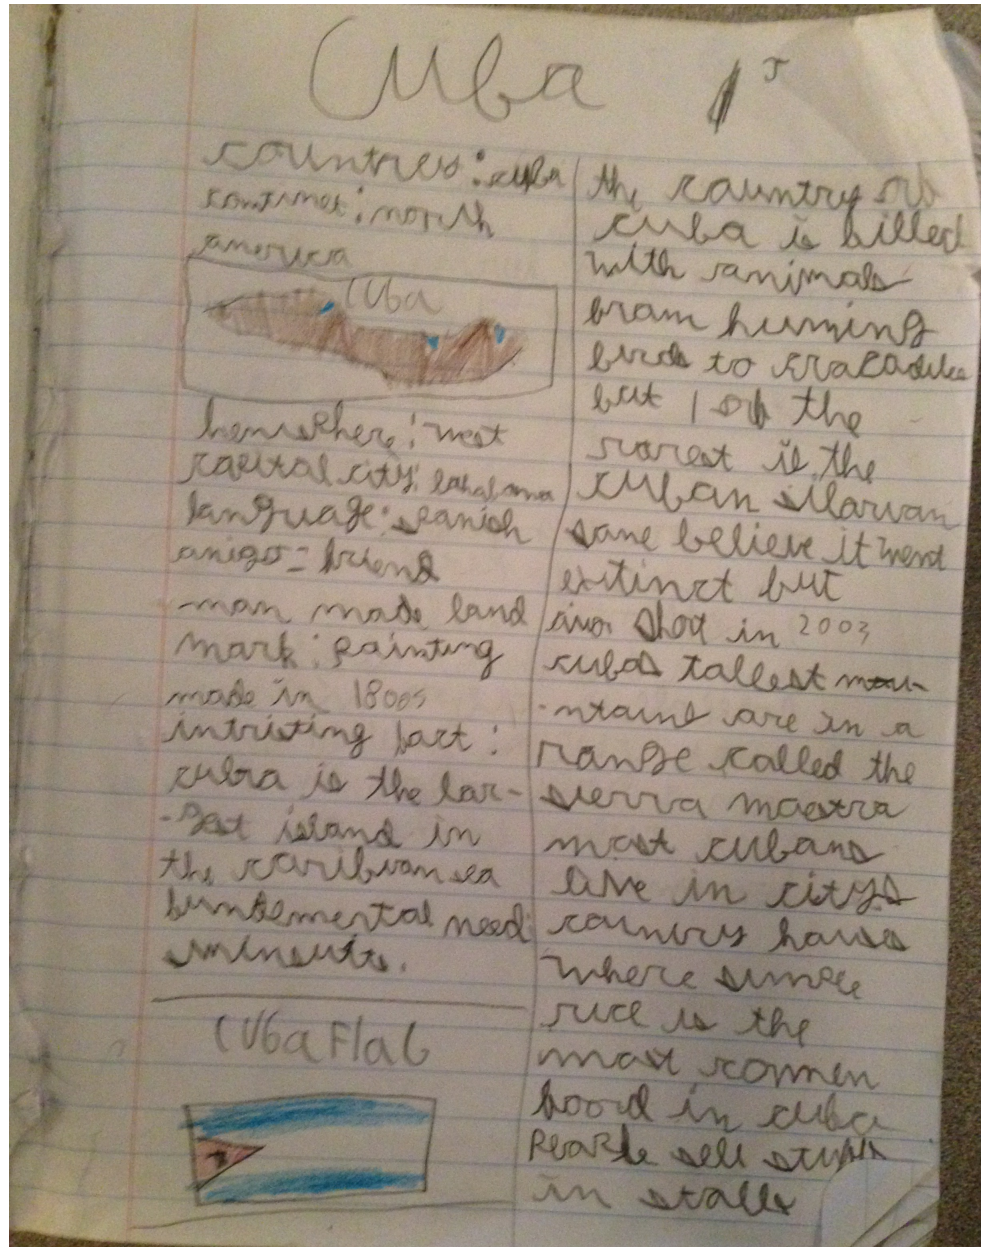 Cuba
countres: cuba
continet: north
america
Cuba
hemsphere: west
capital city:
language: spanish
amigo = friend
man made land
mark: painting
made in 1800s
intristing fact:
cuba is the lar-
-gest island in
the caribvan sea
fundemental need:
CUba FlaG
the country of
cuba is filled
with animals
from huming
birds to cracadiles
but 1 of the
rarest is the
cuban
some believe it went
extinct but
shot in 2003
cubas tallest mou-
-ntains are in a
range called the
sierra maestra
most cubans
live in citys
country houses
where
rice is the
most common
food in cuba
people sell stuff
in stalls